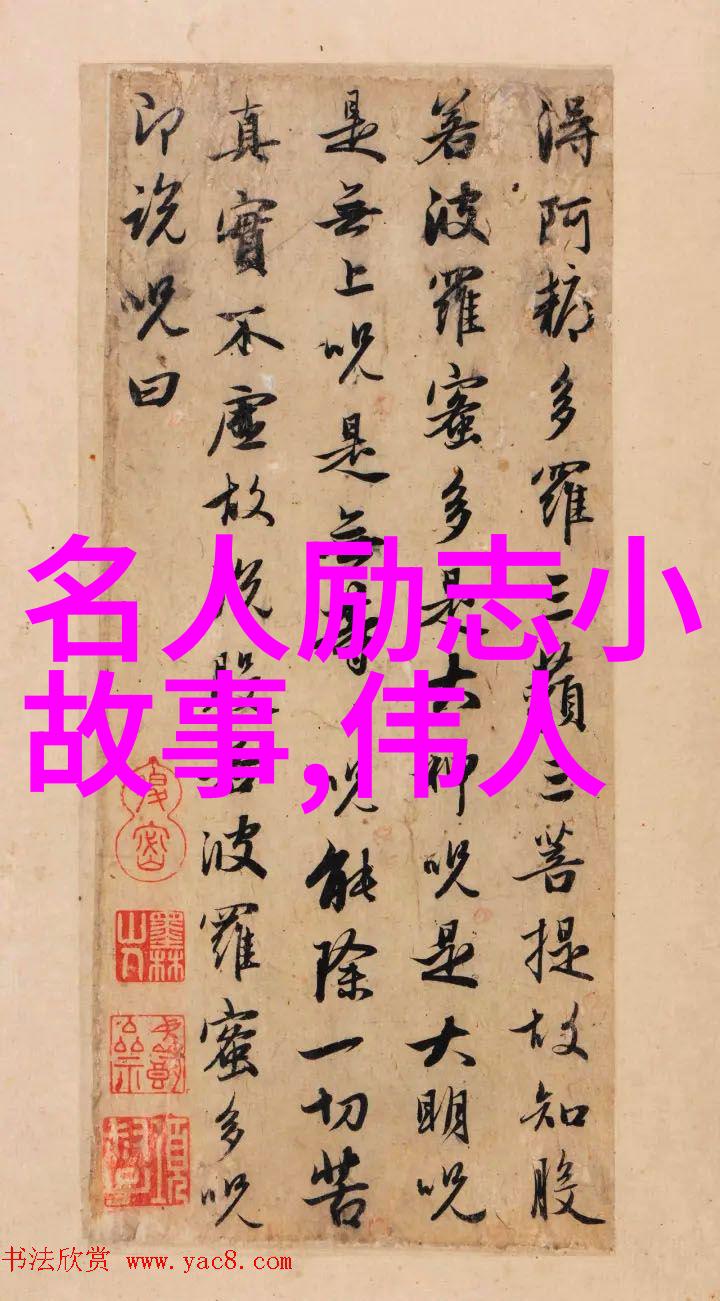 得阿耨多羅三藐三菩提故知般
若波羅蜜多是大神呪是大明呪
是無上呪是無等呪能除一切苦
真實不虛故說般若波羅蜜多呪
即說呪曰
名人励志小
故事,伟人
墨林山人
书法欣赏 www.yac8.com